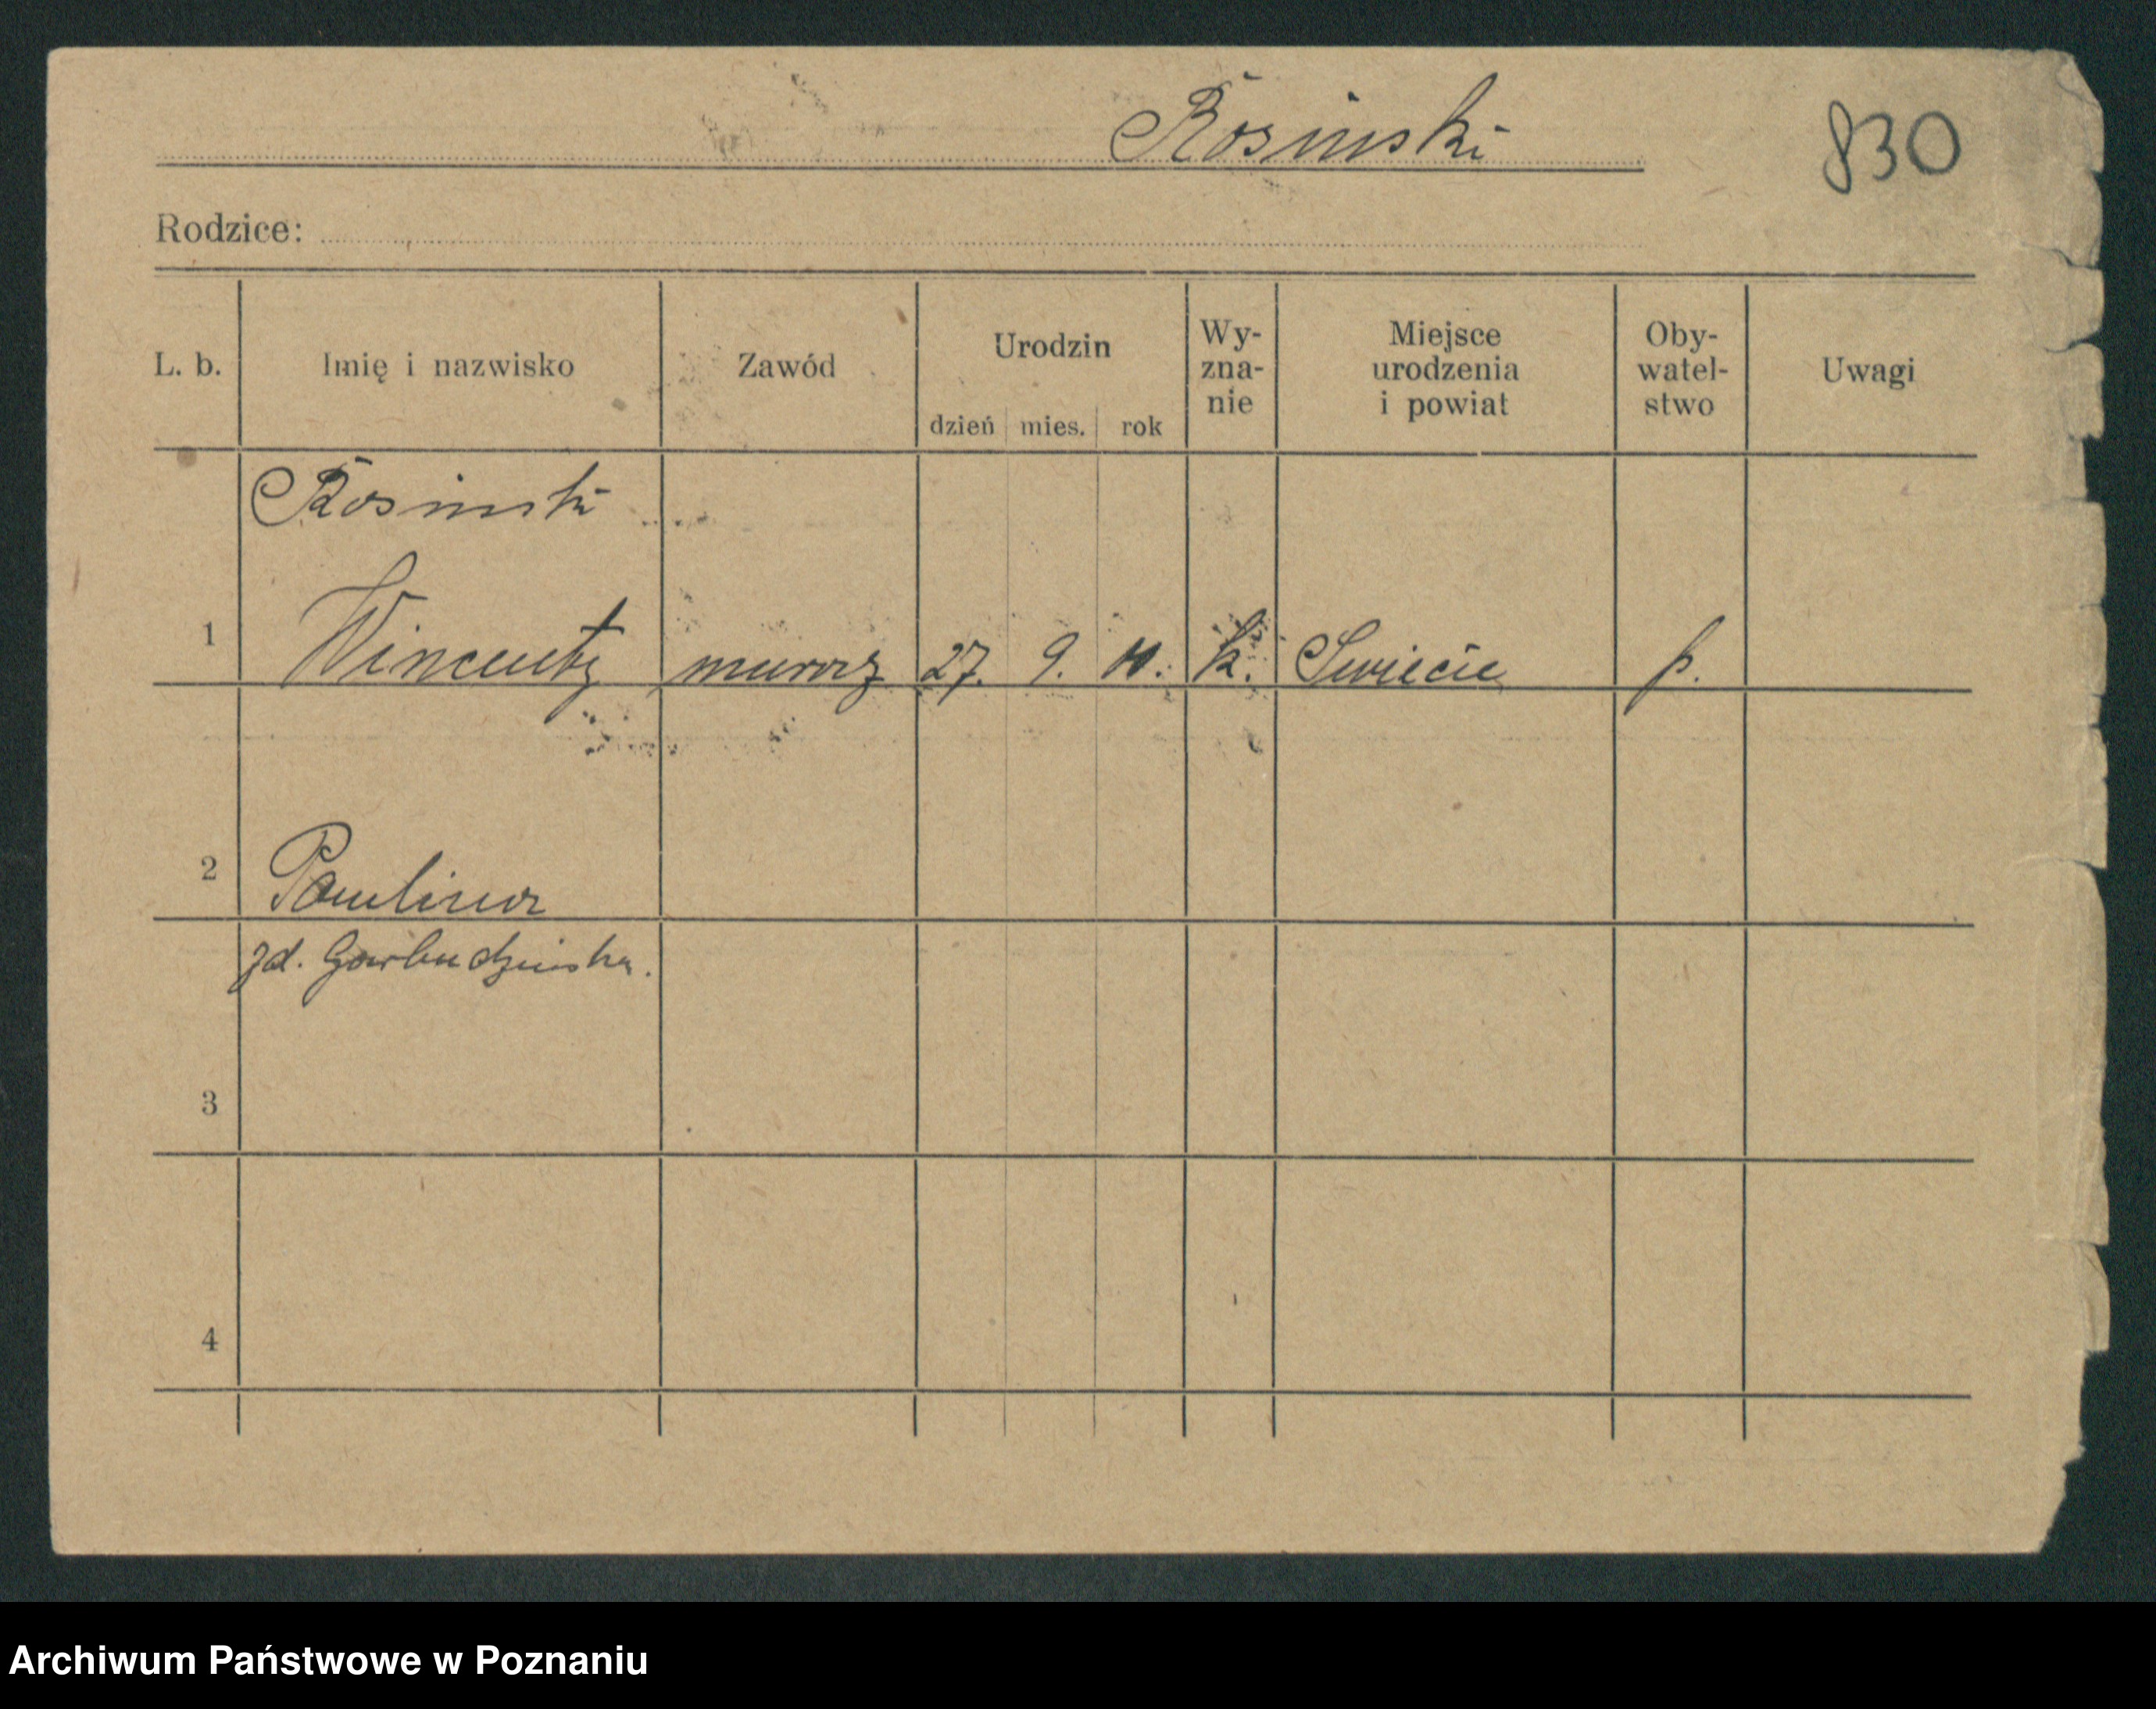 Rosinski
830
Rodzice:
L. b.
Imię i nazwisko
Zawód
Urodzin
dzień mies. rok
Wy-
zna-
nie
Miejsce
urodzenia
i powiat
Oby-
watel-
stwo
Uwagi
Rosinski
1 Wincenty murarz 27. 9. k. Swiecie p.
2 Paulina
zd. Garbudzinska.
3
4
Archiwum Państwowe w Poznaniu